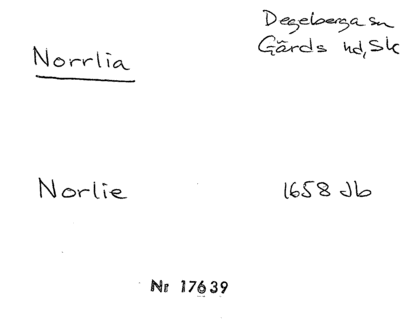 Degeberga sn
Gärds hd, Sk
Norrlia
Norlie 1658 Jb
Nr 17639